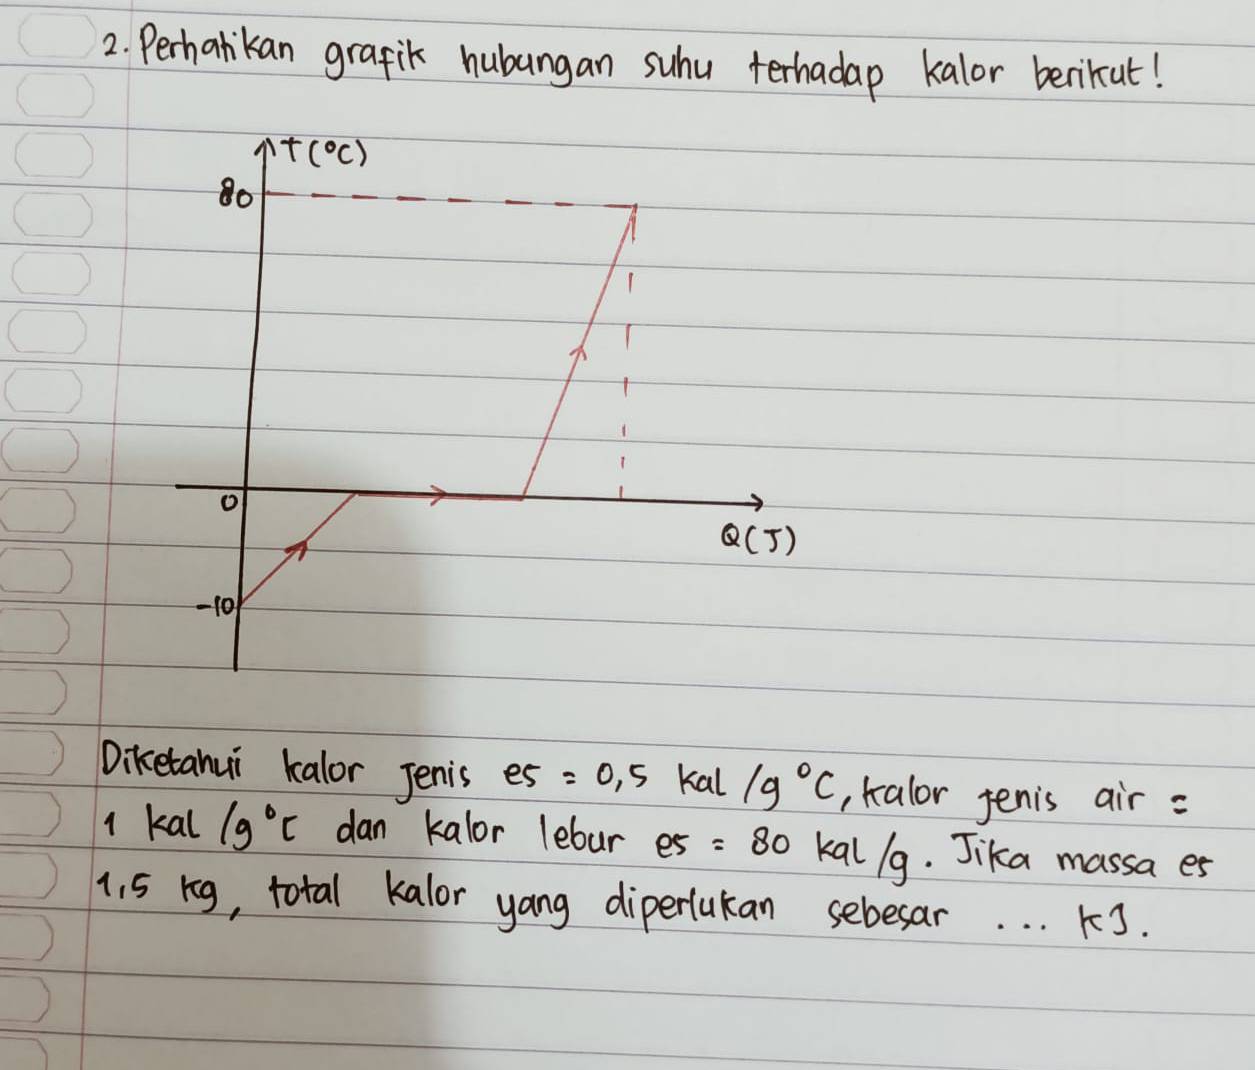 2. Perhatikan grafik hubungan suhu terhadap kalor berikut!
T(°C)
80
0
Q(J)
-10
Diketahui kalor jenis es = 0,5 kal/g °C, kalor jenis air =
1 kal/g°C dan kalor lebur es = 80 kal/g. Jika massa es
1,5 kg, total kalor yang diperlukan sebesar ... kJ.